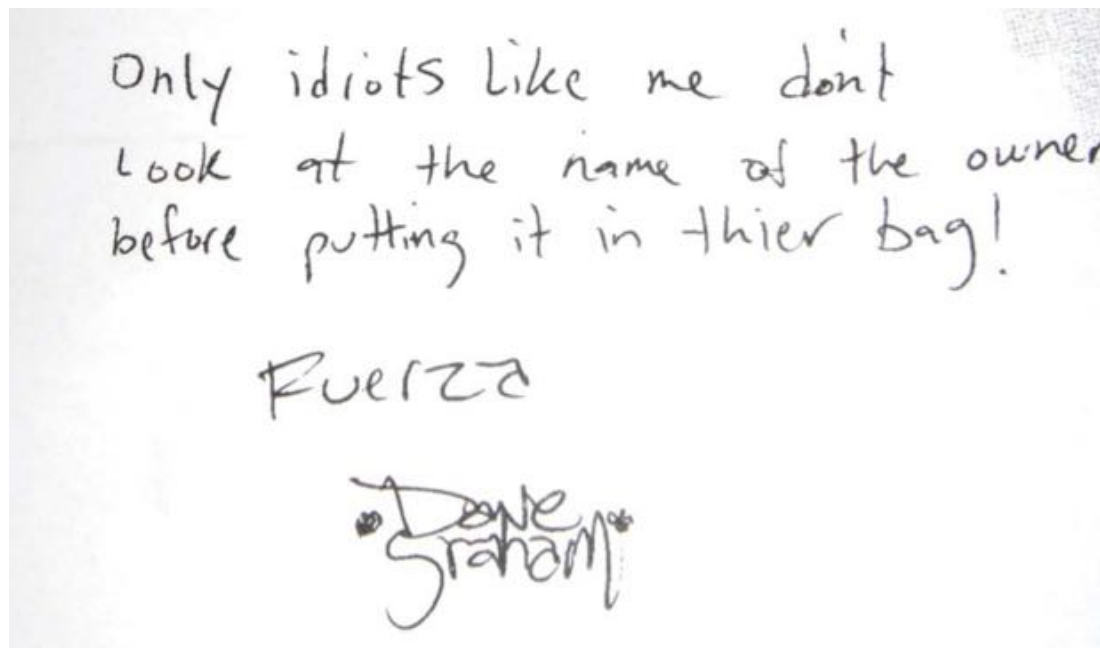 Only idiots Like me don't
Look at the name of the owner
before putting it in thier bag!
Fuerza
Dave
Graham